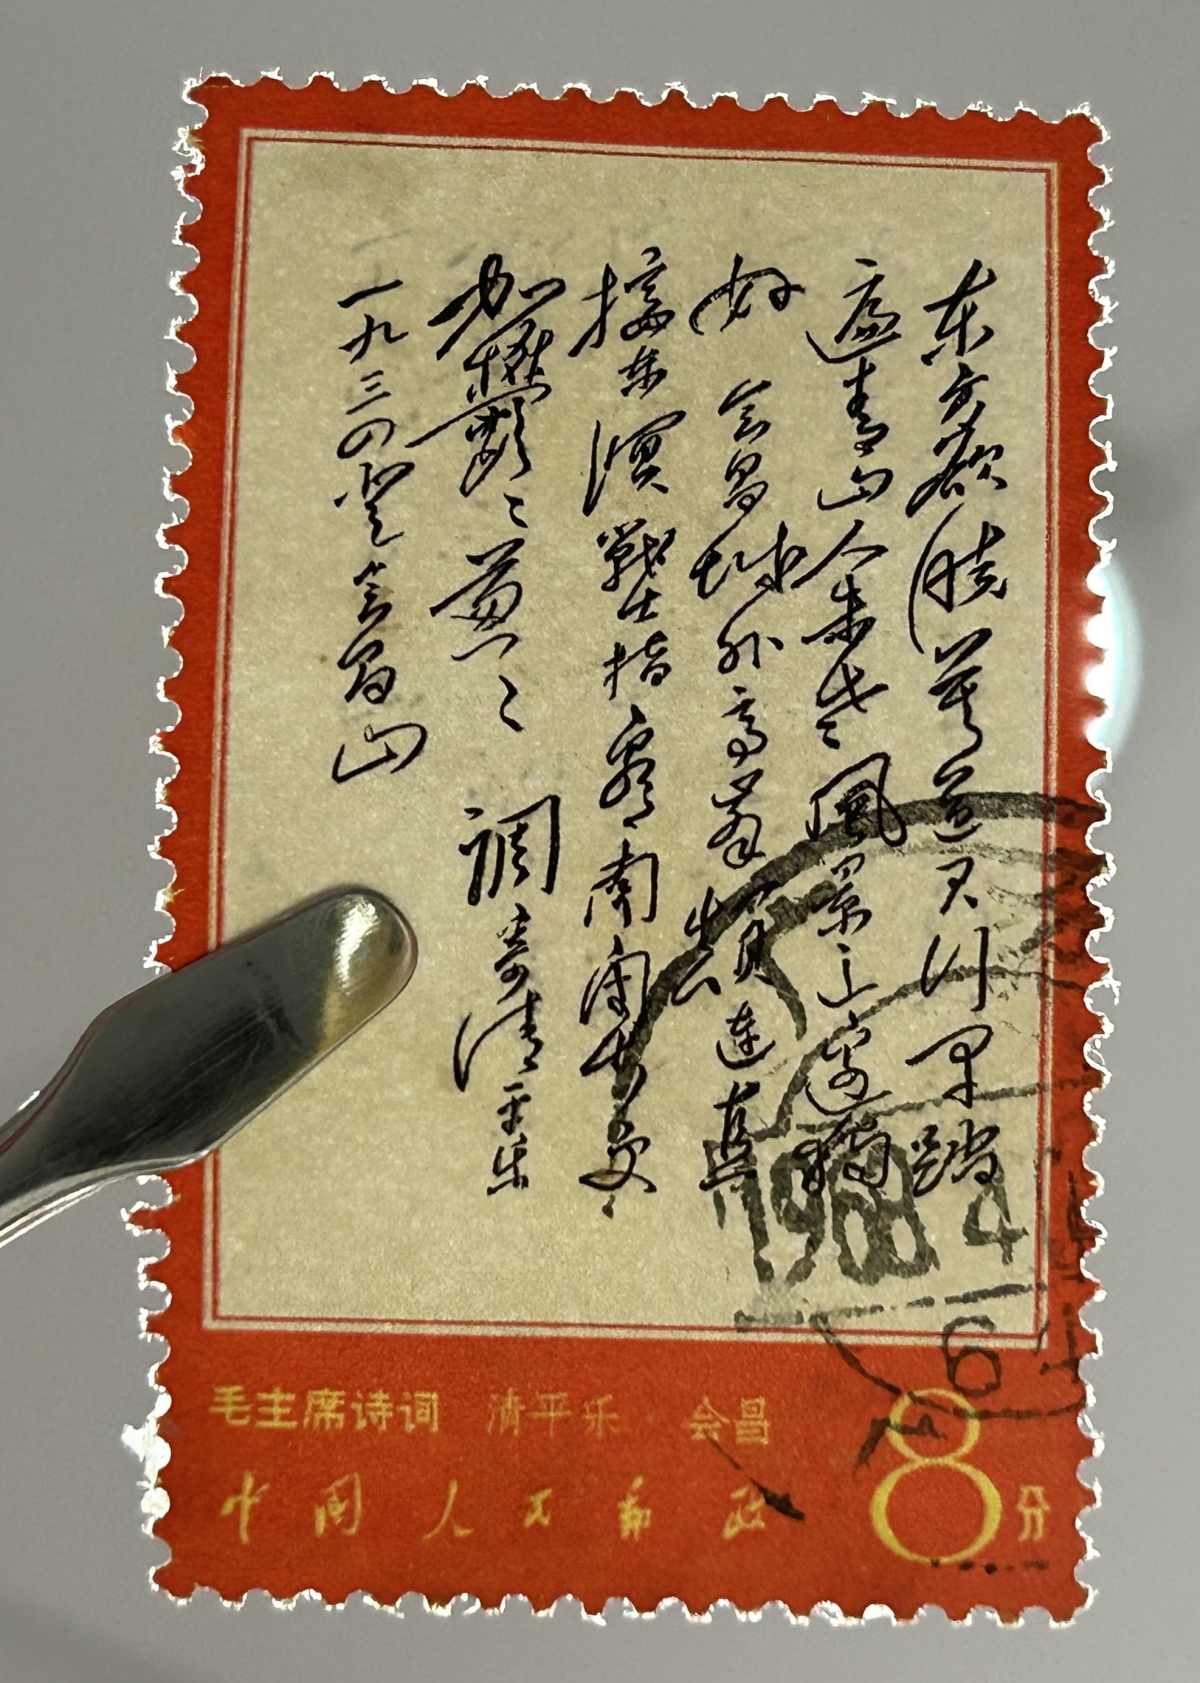 东方欲晓莫道君行早踏
遍青山人未老風景这边独
好 会昌城外高峰颠连直
接东溟戰士指看南粤更
加鬱々葱々 調寄清平乐
一九三四登会昌山
1968 4
6
毛主席诗词 清平乐 会昌
中国人民邮政
8分